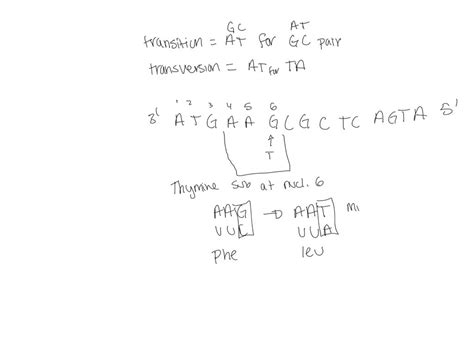 GC AT
transition = AT for GC pair
transversion = AT for TA
1 2 3 4 5 6
3' A T G A A G C G C T C A G T A 5'
↑
T
Thymine sub at nucl. 6
AAG → AAT mi
UUC UUA
phe leu